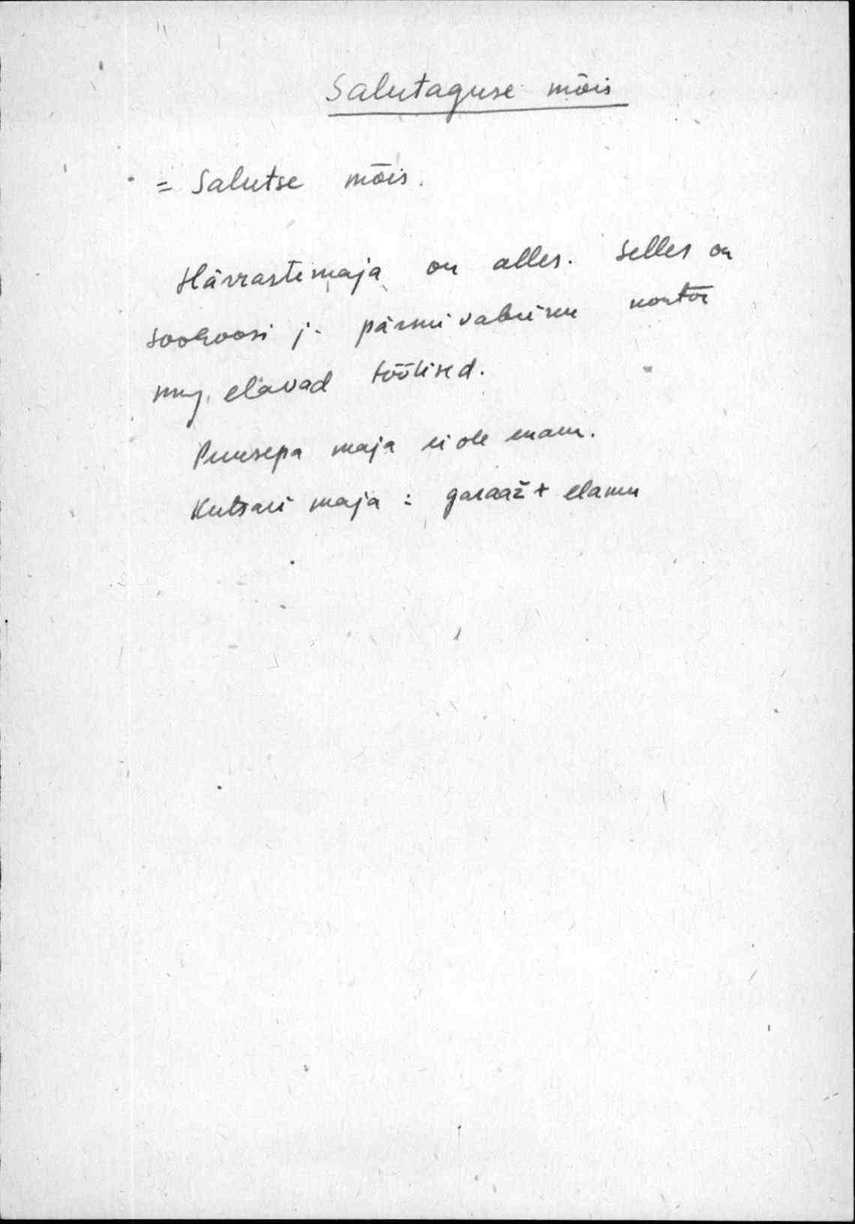 Salutaguse mõis
= Salutse mõis.
Härrastemaja on alles. Selles on
sovhoosi j. pärmivabriku kontor
ning elavad töölised.
Puusepa maja ei ole enam.
Kutsari maja : garaaž + elamu